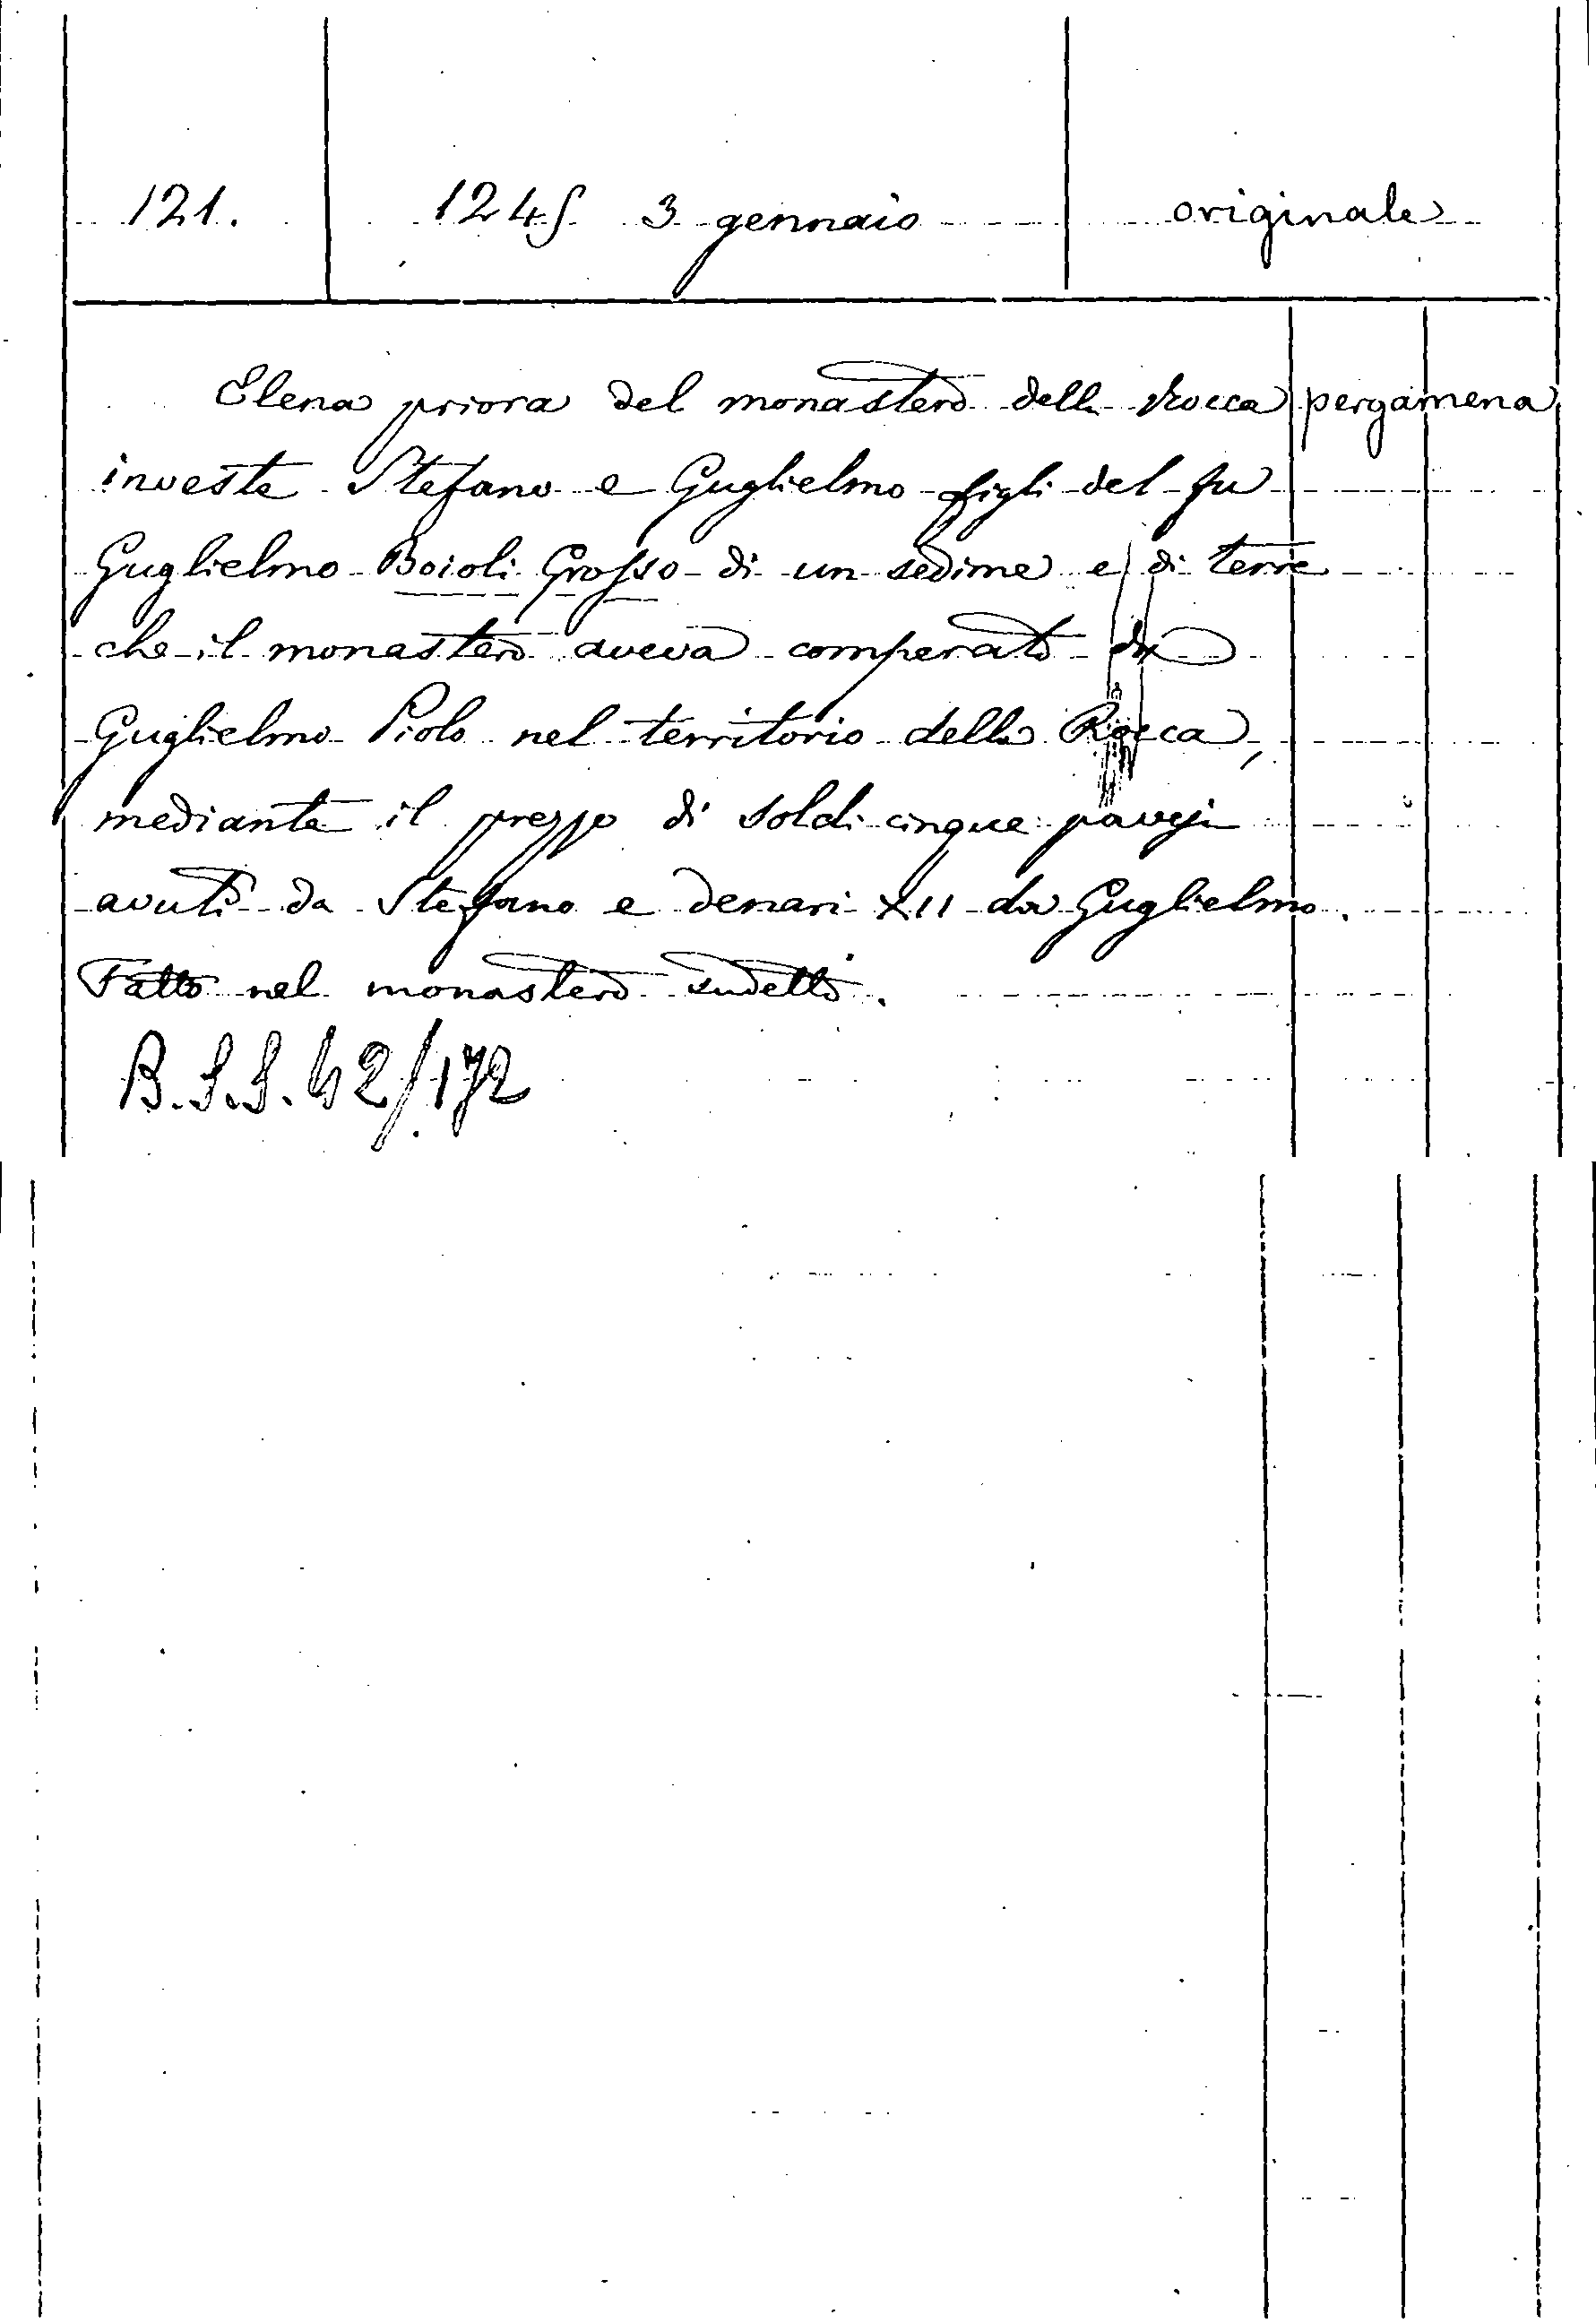 121. 1245 3 gennaio originale
Elena priora del monastero della Rocca pergamena
investe Stefano e Guglielmo figli del fu
Guglielmo Boioli Grosso di un sedime e di terre
che il monastero aveva comperato da
Guglielmo Piolo nel territorio della Rocca,
mediante il prezzo di soldi cinque pavesi
avuti da Stefano e denari XII da Guglielmo.
Fatto nel monastero sudetto.
B.S.S. 42/172